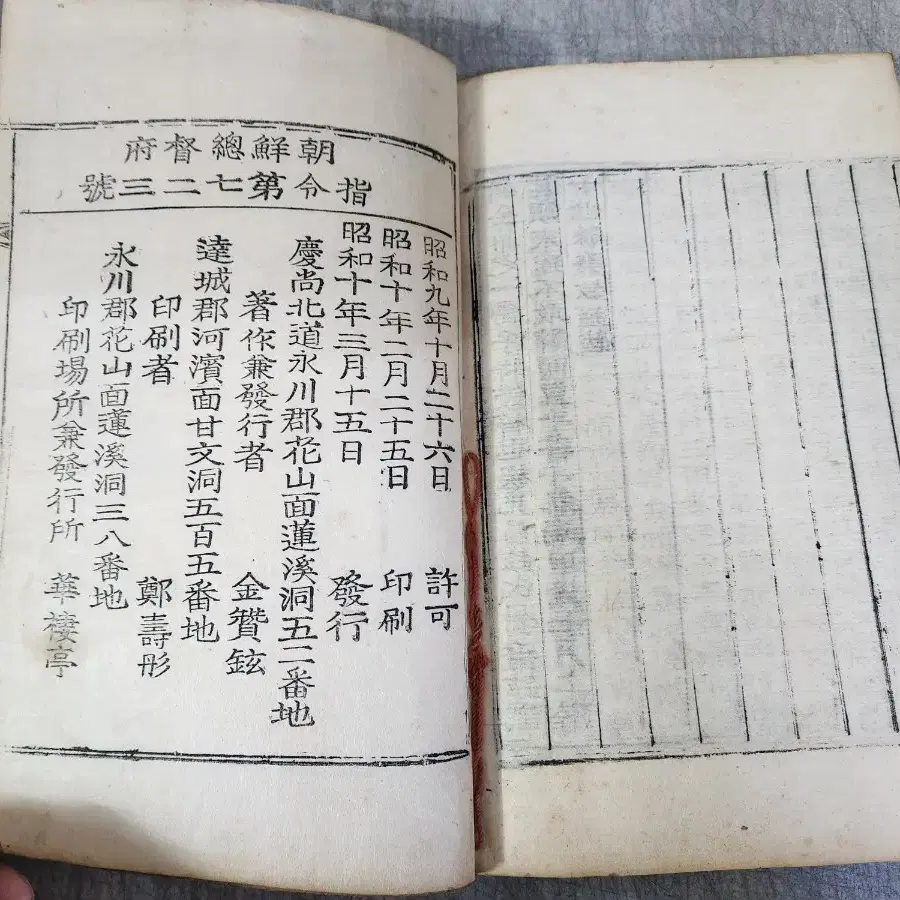 朝鮮總督府
指令第七二三號
昭和九年十月二十六日 許可
昭和十年二月二十五日 印刷
昭和十年三月十五日 發行
慶尚北道永川郡花山面蓮溪洞五二番地
著作兼發行者 金瓚鉉
達城郡河濱面甘文洞五百五番地
印刷者 鄭壽彤
永川郡花山面蓮溪洞三八番地
印刷場所兼發行所 華棲亭